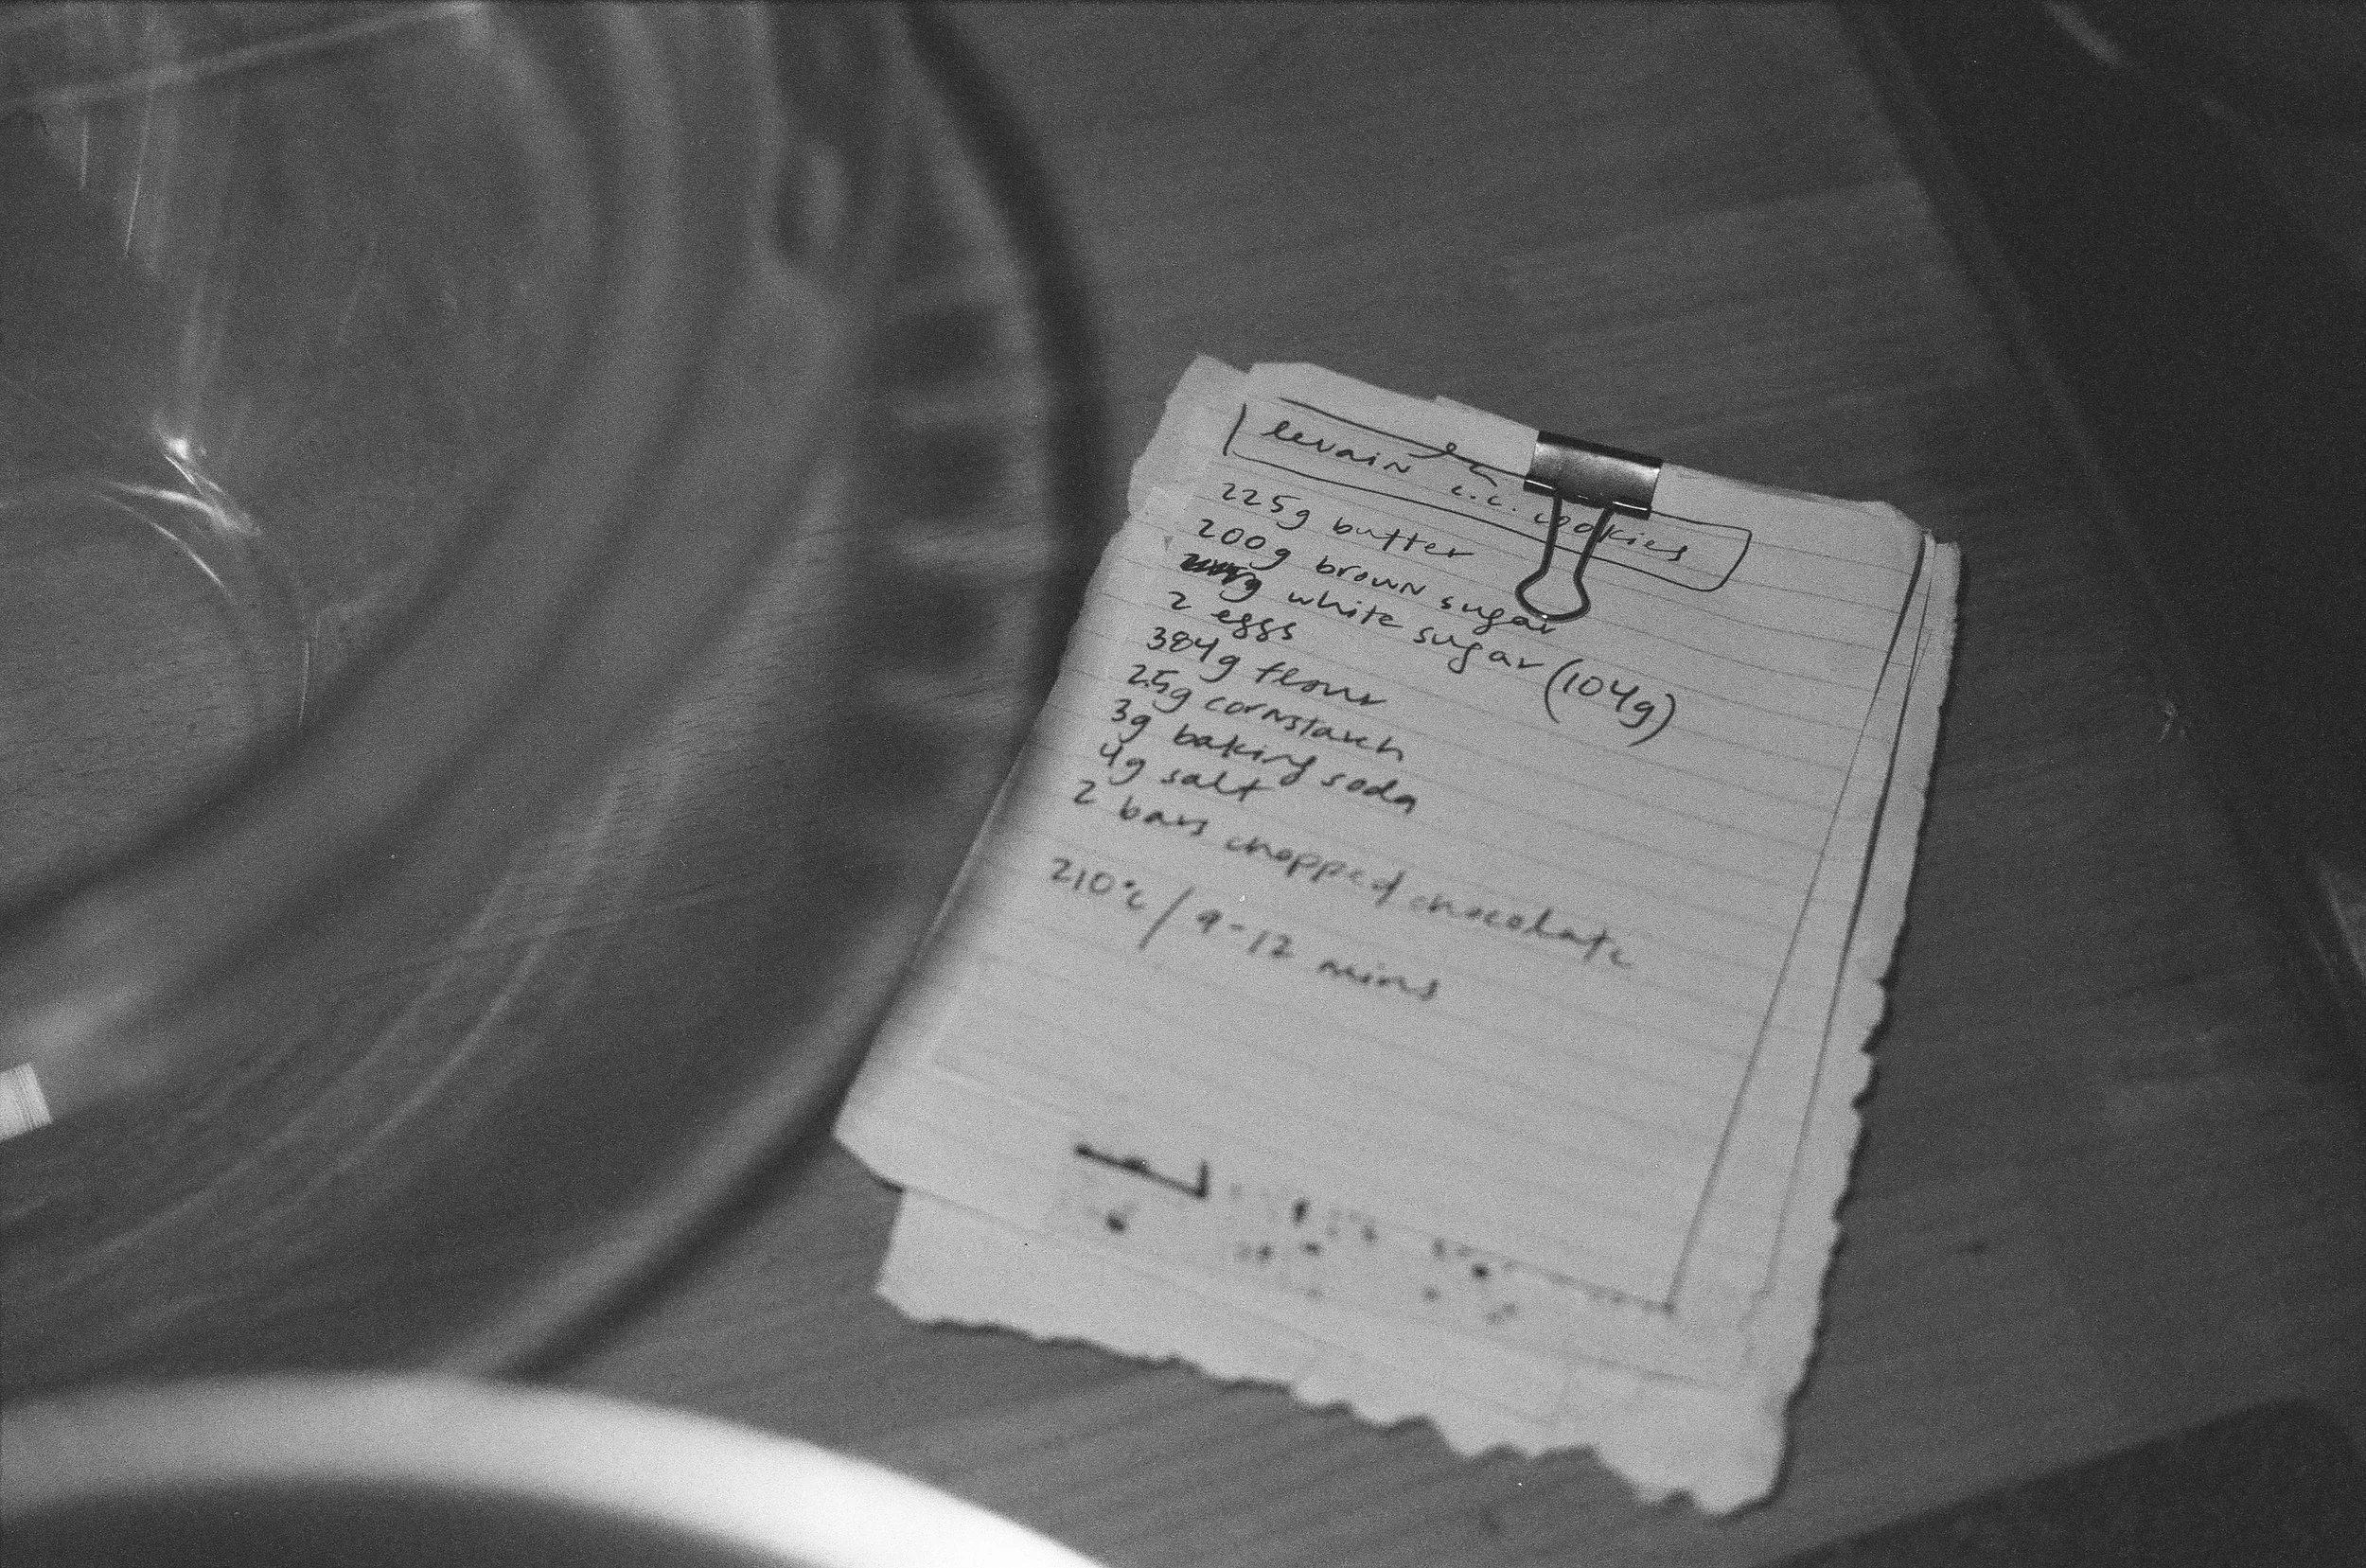 levain c.c. cookies
225g butter
200g brown sugar
g white sugar (104g)
2 eggs
384g flour
2.5g cornstarch
3g baking soda
4g salt
2 bars chopped chocolate
210°c / 9-12 mins